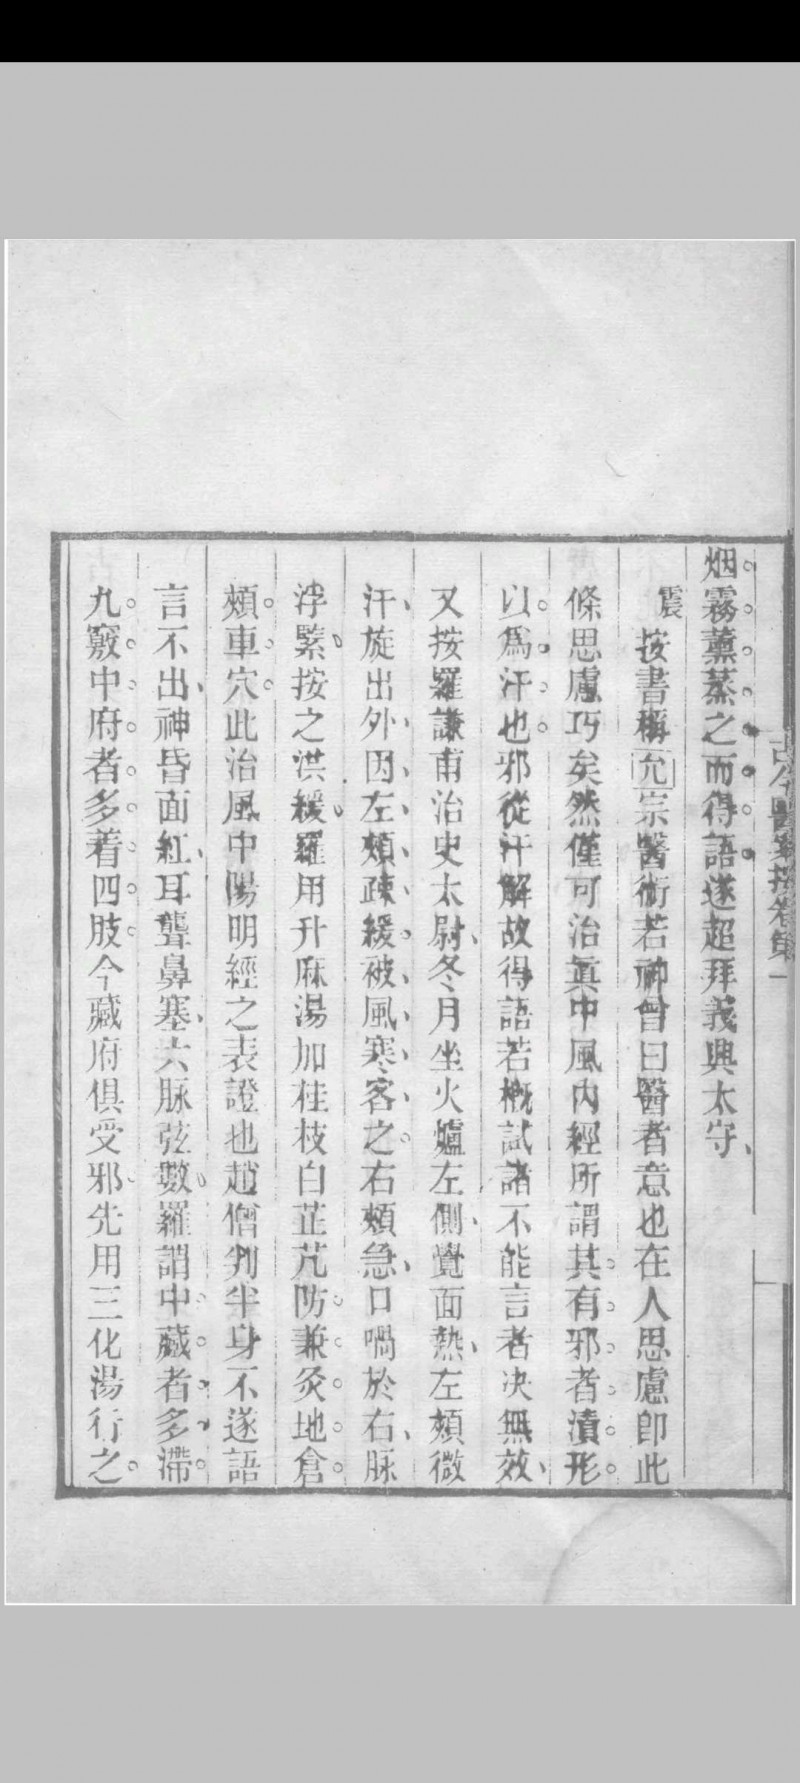 古今醫案按卷第一
烟霧薰蒸之而得語遂超拜義興太守
震按書稱允宗醫術若神曾曰醫者意也在人思慮卽此
條思慮巧矣然僅可治眞中風內經所謂其有邪者漬形
以爲汗也邪從汗解故得語若概試諸不能言者决無效
又按羅謙甫治史太尉冬月坐火爐左側覺面熱左頰微
汗旋出外因左頰疎緩被風寒客之右頰急口喎於右脉
浮緊按之洪緩羅用升麻湯加桂枝白芷艽防兼灸地倉
頰車穴此治風中陽明經之表證也趙僧判半身不遂語
言不出神昏面紅耳聾鼻塞六脉弦數羅謂中藏者多滯
九竅中府者多着四肢今藏府俱受邪先用三化湯行之